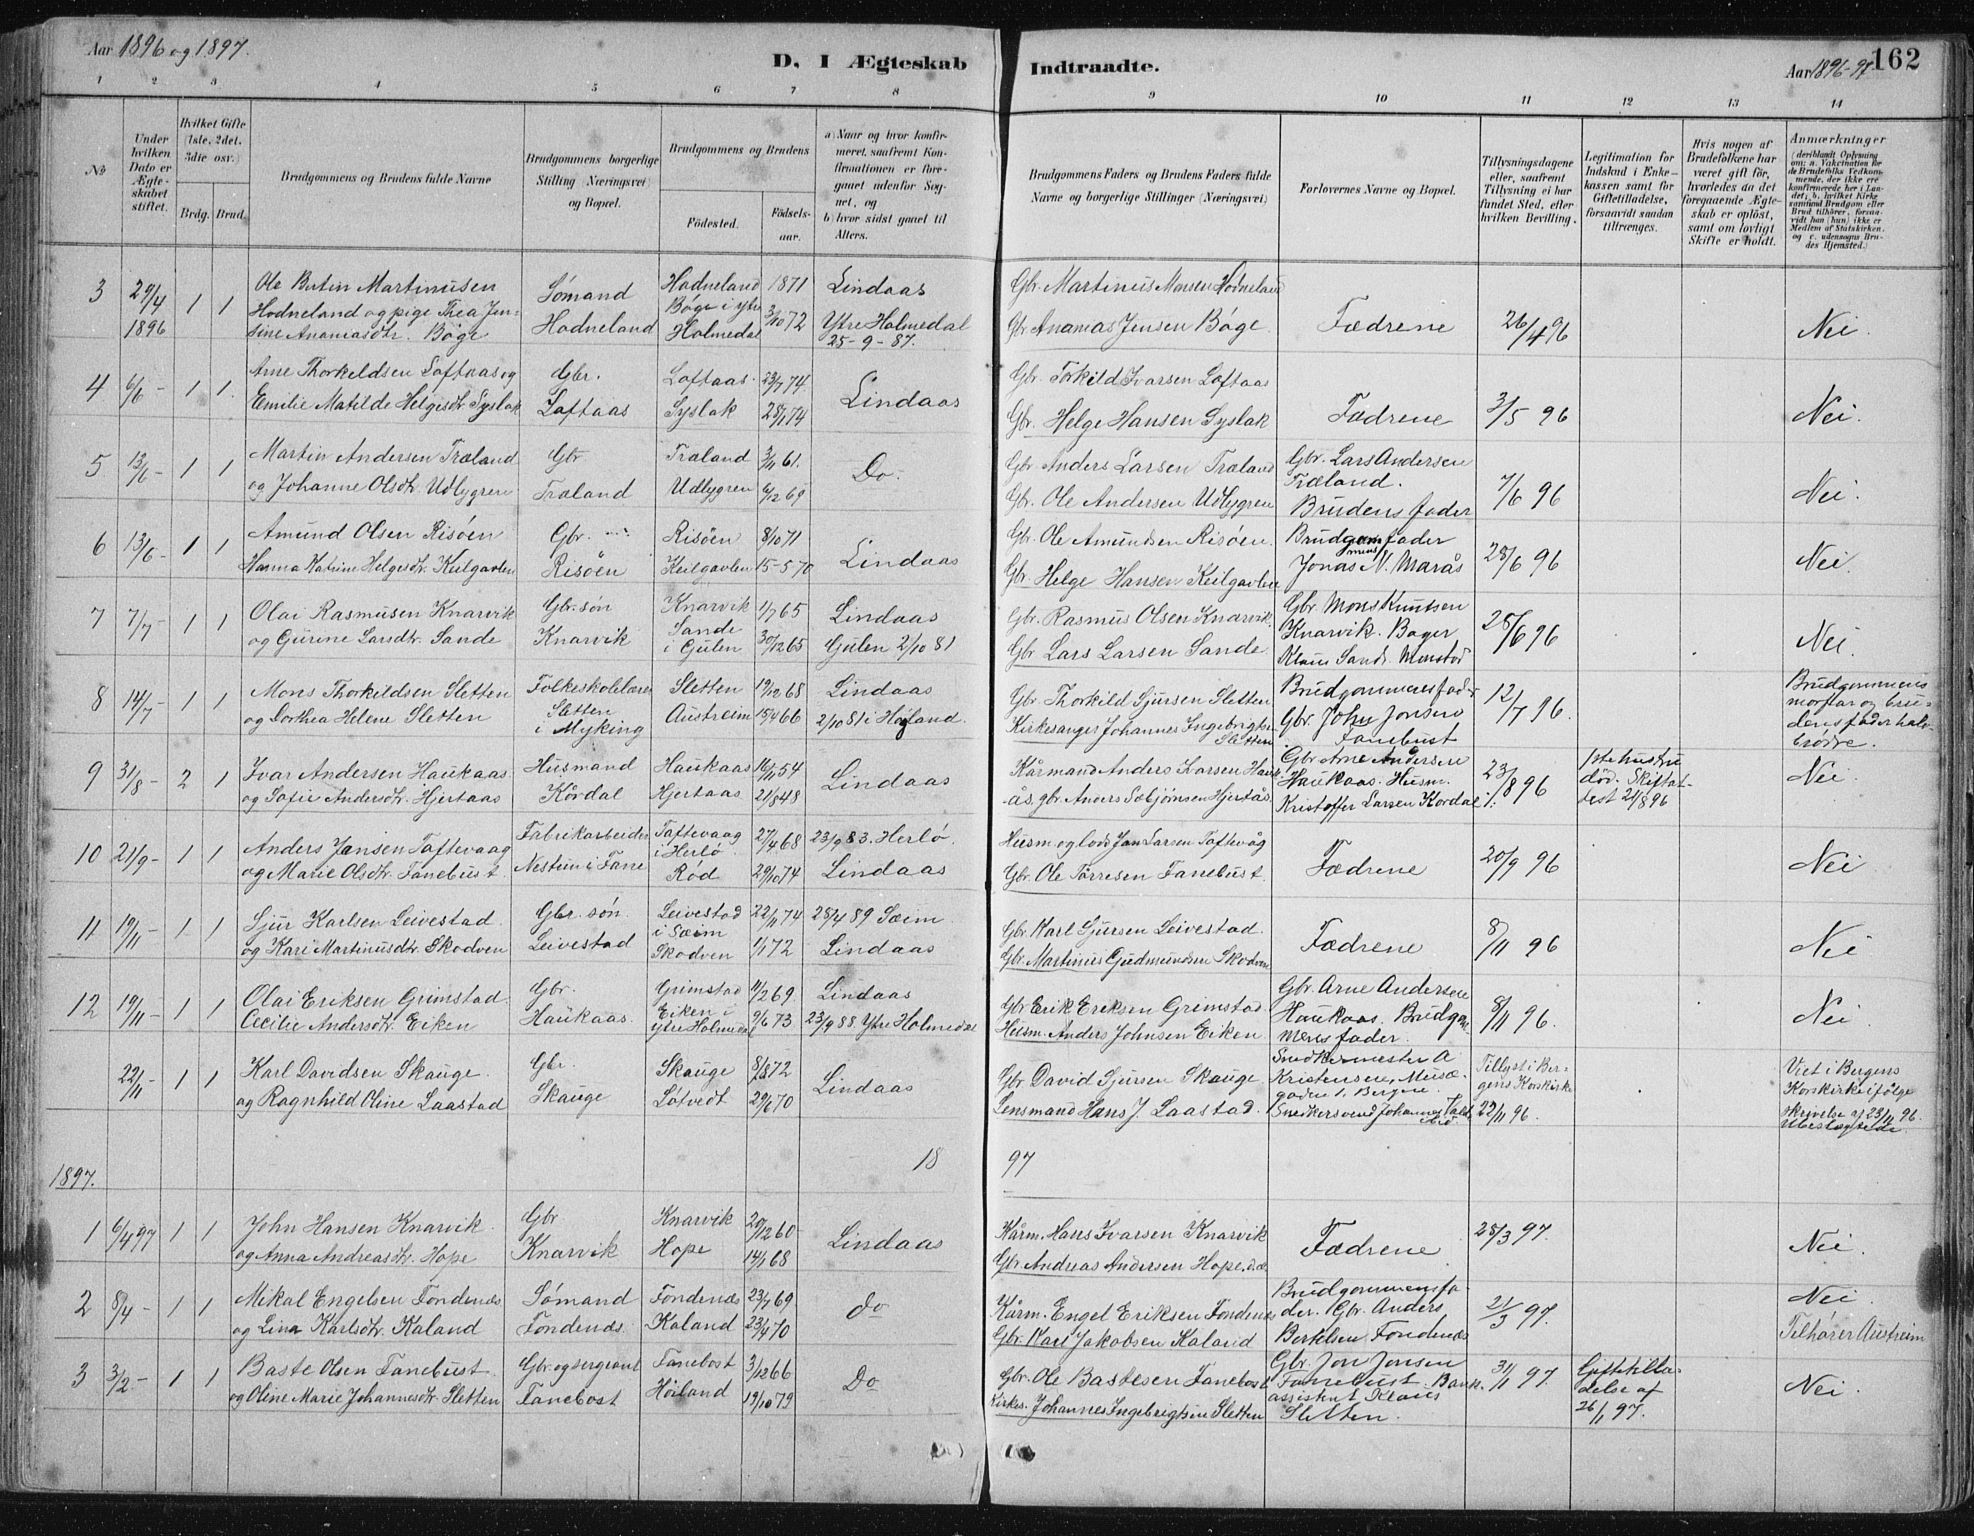 Aar 1896 og 1897.
D. I Ægteskab Indtraadte.
Aar 1896-97 162
1 2 3 4 5 6 7 8 9 10 11 12 13 14
No
Under hvilken Dato er Ægteskabet stiftet.
Hvilket Gifte (1ste, 2det, 3die osv.)
Brdg. Brud.
Brudgommens og Brudens fulde Navne
Brudgommens borgerlige Stilling (Næringsvei) og Bopæl.
Brudgommens og Brudens
Fødested. Fødselsaar.
a) Naar og hvor konfirmeret, saafremt Konfirmationen er foregaaet udenfor Sognet, og
b) hvor sidst gaaet til Alters.
Brudgommens Faders og Brudens Faders fulde Navne og borgerlige Stillinger (Næringsvei)
Forlovernes Navne og Bopæl.
Tillysningsdagene eller, saafremt Tillysning ei har fundet Sted, efter hvilken Bevilling.
Legitimation for Indskud i Enkekassen samt for Giftetilladelse, forsaavidt saadan tiltrænges.
Hvis nogen af Brudefolkene har været gift før, hvorledes da det foregaaende Ægteskab er opløst, samt om lovligt Skifte er holdt.
Anmærkninger
(deriblandt Oplysning om: a. Vakcination for de Brudefolks Vedkommende, der ikke ere konfirmerede her i Landet; b. hvilket Kirkesamfund Brudgom eller Brud tilhører, forsaavidt han (hun) ikke er Medlem af Statskirken. og c. udensogns Brudes Hjemsted.)
3 29/4 1896 1 1 Ole Martinusen Hodneland og pige Thea Jensine Ananiasdtr. Bøge Sømand Hodneland Hodneland 1871 Bøge i Ytre Holmedal 3/10 72 Lindaas Ytre Holmedal 25-9-87. Gbr. Martinus Monsen Hodneland Gbr Ananias Jensen Bøge. Fædrene 26/4 96 Nei.
4 6/6 - 1 1. Arne Thorkildsen Loftaas og Emilie Matilde Helgesdtr Syslak Gbr. Loftaas Loftaas 23/7 74 Syslak 28/1 74 Lindaas Gbr. Torkild Ivarsen Loftaas Gbr. Helge Hansen Syslak Fædrene 3/5 96 Nei.
5 13/6 - 1 1 Martin Andersen Træland og Johanne Olsdtr. Udlygren Gbr Træland Træland 3/11 61. Udlygren 6/12 69 Do. Gbr. Anders Larsen Træland Gbr. Ole Andersen Udlygren Gbr. Lars Andersen Træland. Brudens fader 7/6 96 Nei.
6 13/6 - 1 1 Amund Olsen Risöen Hanna Katrine Helgesdtr. Keilgavlen Gbr. Risöen Risöen 8/10 71 Keilgavlen 15-5-70 Lindaas Gbr. Ole Amundsen Risøen. Gbr. Helge Hansen Keilgavlen Brudgommens fader Jonas N. Marås 28/6 96 Nei.
7 7/7 - 1 1 Olai Rasmusen Knarvik og Gurine Larsdtr. Sande Gbr. søn Knarvik Knarvik 1/7 65 Sande i Gulen 30/12 65 Lindaas Gulen 2/10 81 Gbr. Rasmus Olsen Knarvik. Gbr Lars Larsen Sande. Gbr. Mons Knutsen Knarvik. Bager Klaus Sande. 28/6 96 Nei.
8 14/7 - 1 1 Mons Thorkildsen Sletten og Dorthea Helene Sletten Folkeskolelærer Sletten i Myking Sletten 19/12 68 Austreim 15/4 66 Lindaas 2/10 81 i Hoyland. Gbr. Thorkild Sjursen Sletten Kirkesanger Johannes Ingebrigtsen Sletten Brudgommens fader Gbr. John Jonsen Fanebust 12/7 96. Brudgommens morfar og brudens fader halvbrødre.
9 31/8 - 2 1 Ivar Andersen Haukaas og Sofie Andersdtr. Hjertaas Husmand Kördal Haukaas 16/11 54 Hjertaas 21/8 48 Lindaas Kårmand Anders Larsen Haukås. gbr. Anders Hjertås. Gbr Arne Andersen Haukaas. Husm. Kristoffer Larsen Kördal 23/8 96 1ste hustru død. Skifteattest 21/8 96 Nei
10 21/9 - 1 1 Anders Jansen Toftevaag og Marie Olsdtr. Fanebust Fabrikarbeider Nestun i Fane Toftevaag i Herlø. 27/4 68 Rod 29/10 74 23/9 83. Herlö. Lindaas Husm. og lods Jan Larsen Toftevåg Gbr. Ole Torresen Fanebust. Fædrene 20/9 96 Nei
11 19/11 - 1 1 Sjur Karlsen Leivestad. og Kari Martinusdtr. Skodven Gbr. søn. Leivestad Leivestad i Sæim 22/11 74 Skodven 1/1 72 28/4 89 Sæim Lindaas Gbr. Karl Sjursen Leivestad. Gbr. Martinus Gudmundsen Skodven Fædrene 8/11 96 Nei
12 19/11 - 1 1 Olai Eriksen Grimstad. Cecilie Andersdtr. Eiken Gbr. Haukaas. Grimstad 11/2 69 Eiken i Ytre Holmedal 9/6 73 Lindaas 23/9 88 Ytre Holmedal Gbr Erik Eriksen Grimstad. Husm. Anders Johnsen Eiken Gbr. Arne Andersen Haukaas. Brudgommens fader. 8/11 96. Nei
22/11 - 1 1 Karl Davidsen Skauge. og Ragnhild Oline Laastad Gbr. Skauge Skauge 8/8 72 Løtvedt 29/6 70 Lindaas Gbr David Sjursen Skauge Lensmand Hans J. Laastad. Snedkermester A Kristensen, i Bergen. Snedkersvend Johannes Tillyst i Bergens Korskirke 22/11 96. Viet i Bergens Korskirke ifölge skrivelse af 23/11 96. Ubeslægtede.
1897. 18 97
1 6/4 97 1 1 John Hansen Knarvik. og Anna Andreasdtr. Hope Gbr Knarvik Knarvik 20/12 60 Hope 14/1 68 Lindaas Kårm. Hans Ivarsen Knarvik Gbr. Andreas Andersen Hope. Fædrene 28/3 97. Nei.
2 8/4 - 1 1 Mikal Engelsen Fondenæs og Lina Karlsdtr. Kaland Sømand Fondenæs. Fondenæs 23/7 69 Kaland 23/4 70 Do Kårm. Engel Eriksen Fondenes Gbr. Karl Jakobsen Kaland Brudgommens fader. Gbr. Anders Bertelsen Fondenæs 21/3 97. Nei. Tilhører Austreim
3 3/2. - 1 1 Baste Olsen Fanebust. og Oline Marie Johannesdtr. Sletten Gbr. og sergeant Fanebost Fanebost 3/12 66 Höiland 19/10 79 Do Gbr. Ole Bastesen Fanebost Kirkes. Johannes Ingebrigtsen Sletten Gbr. Jon Jonsen Fanebust. Bankassistent Klaus Sletten. 31/1 97. Giftetilladelse af 26/1 97. Nei.